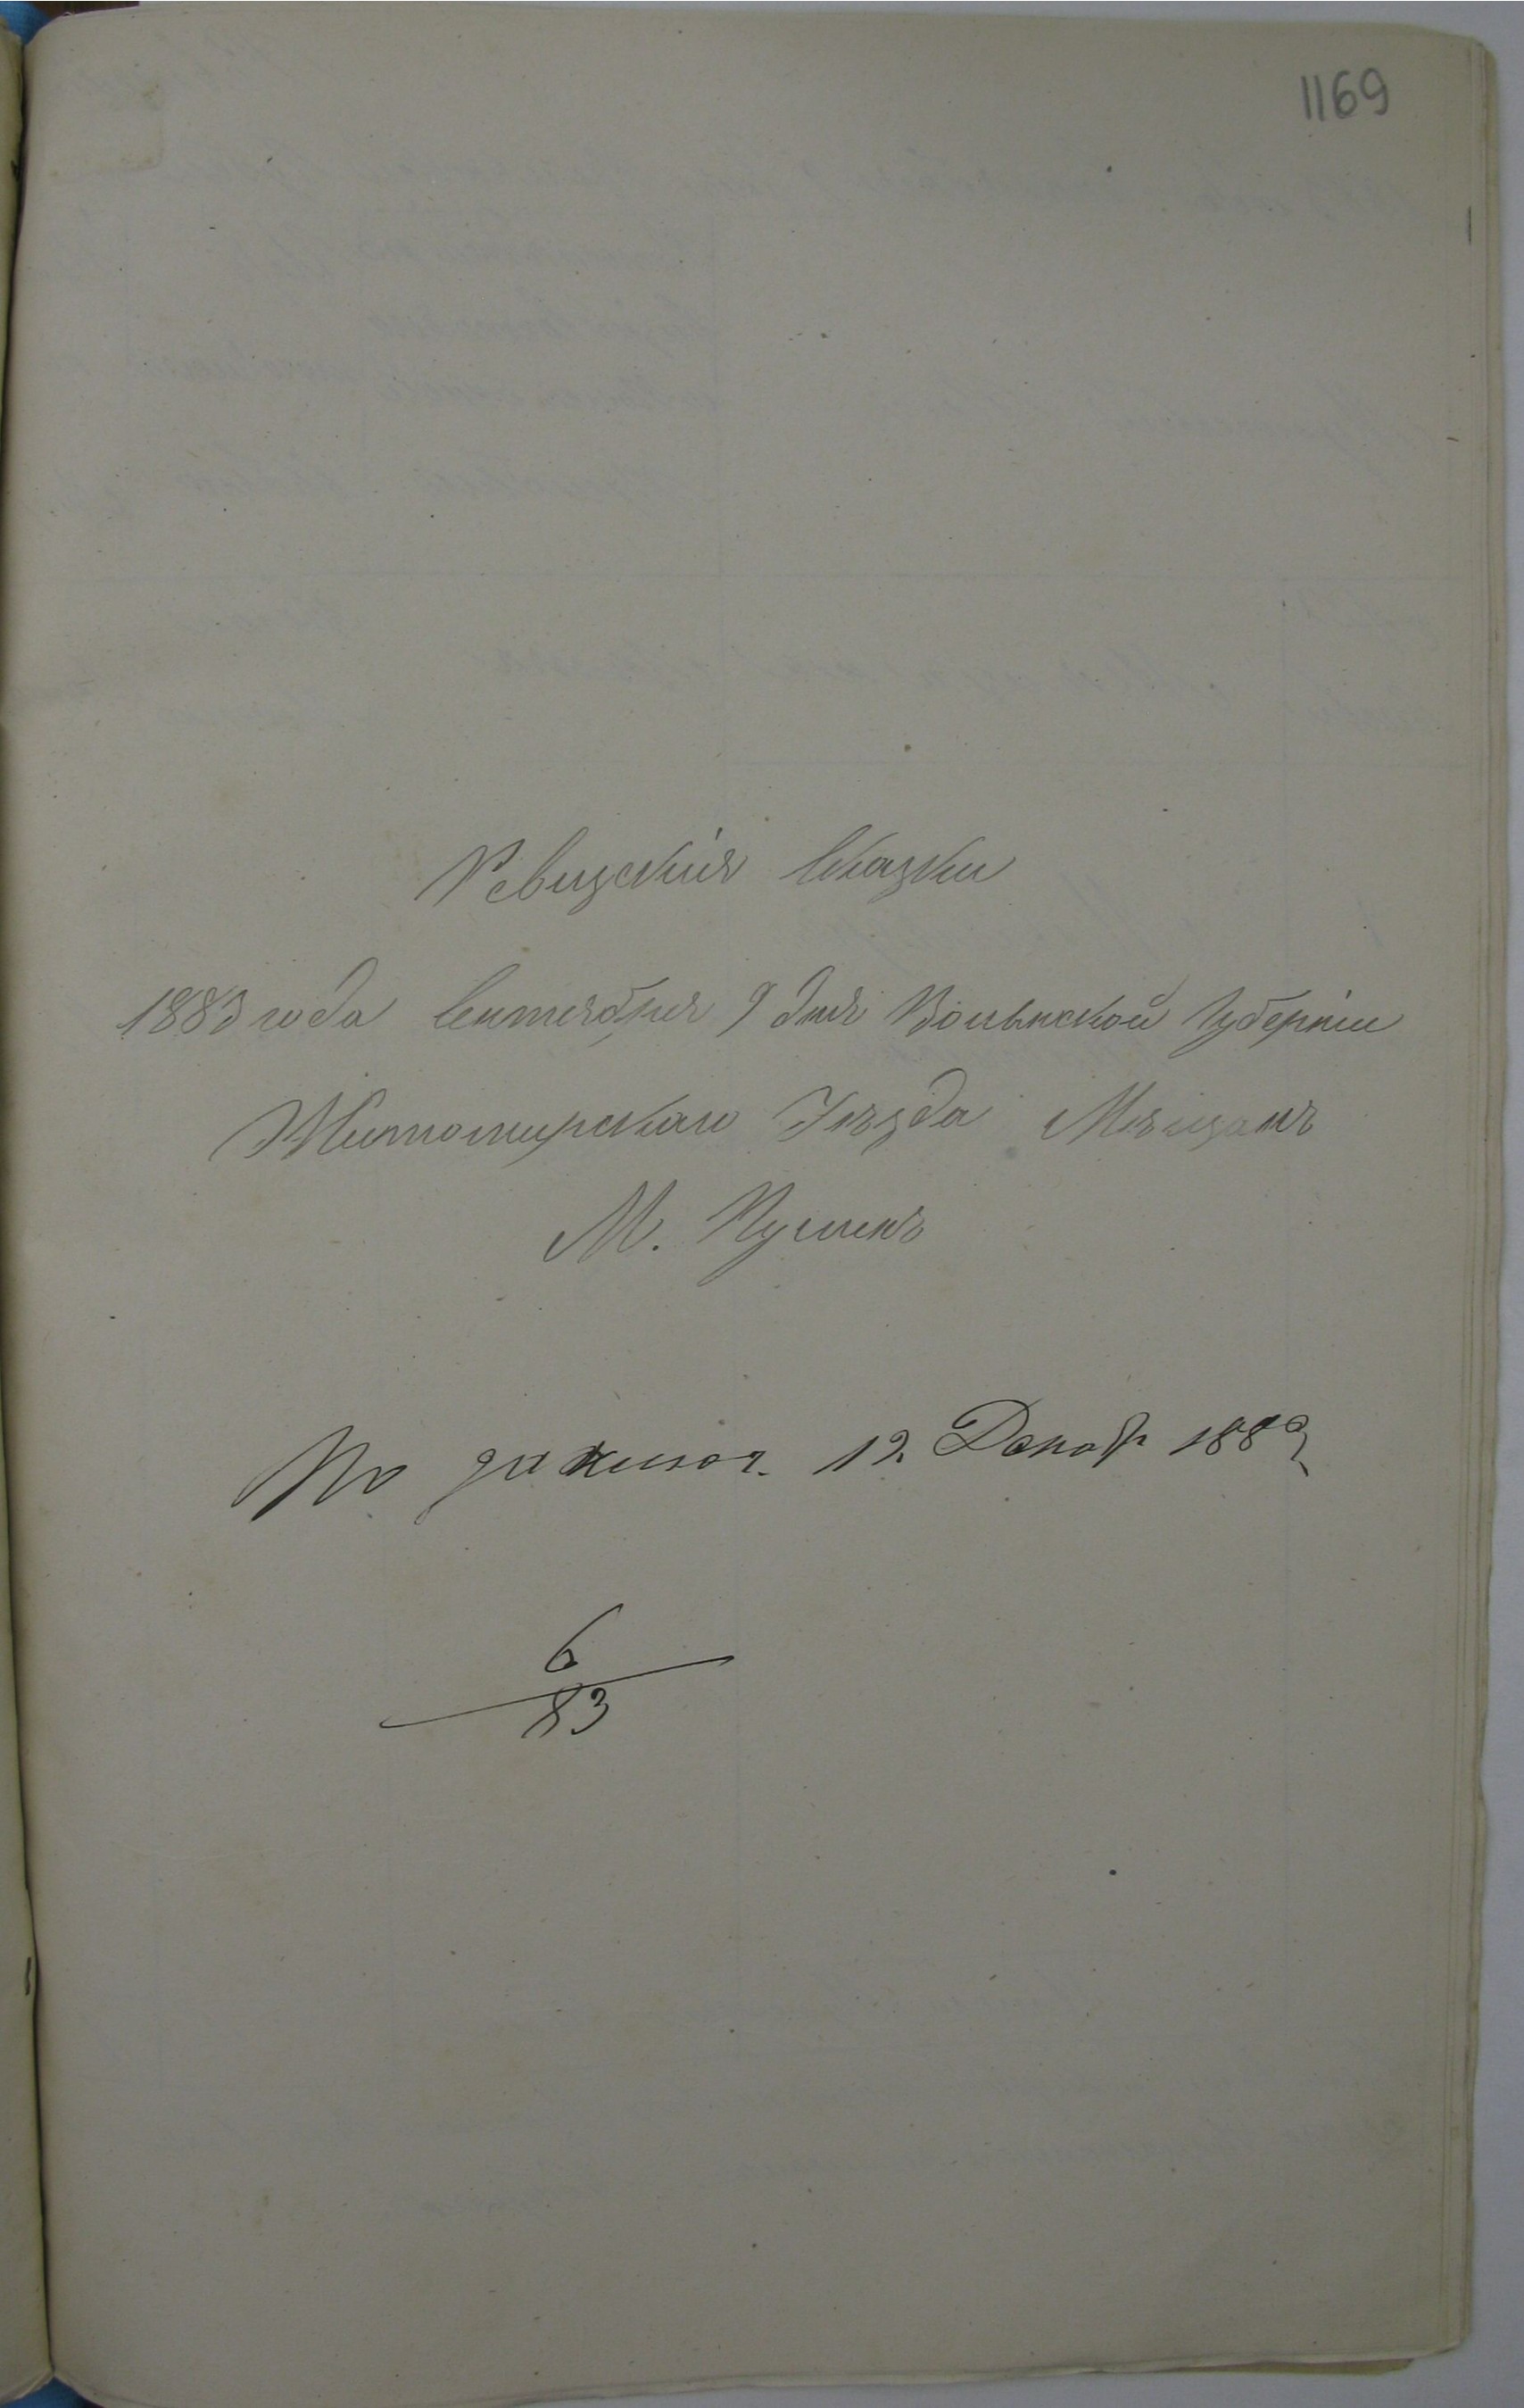 1169
Ревизскія Сказки
1883 года Сентября 9 дня Волынской Губерніи
Житомирскаго Уѣзда Мѣщанъ
М. Пулинъ
По 12 Декаб 1883
6
83